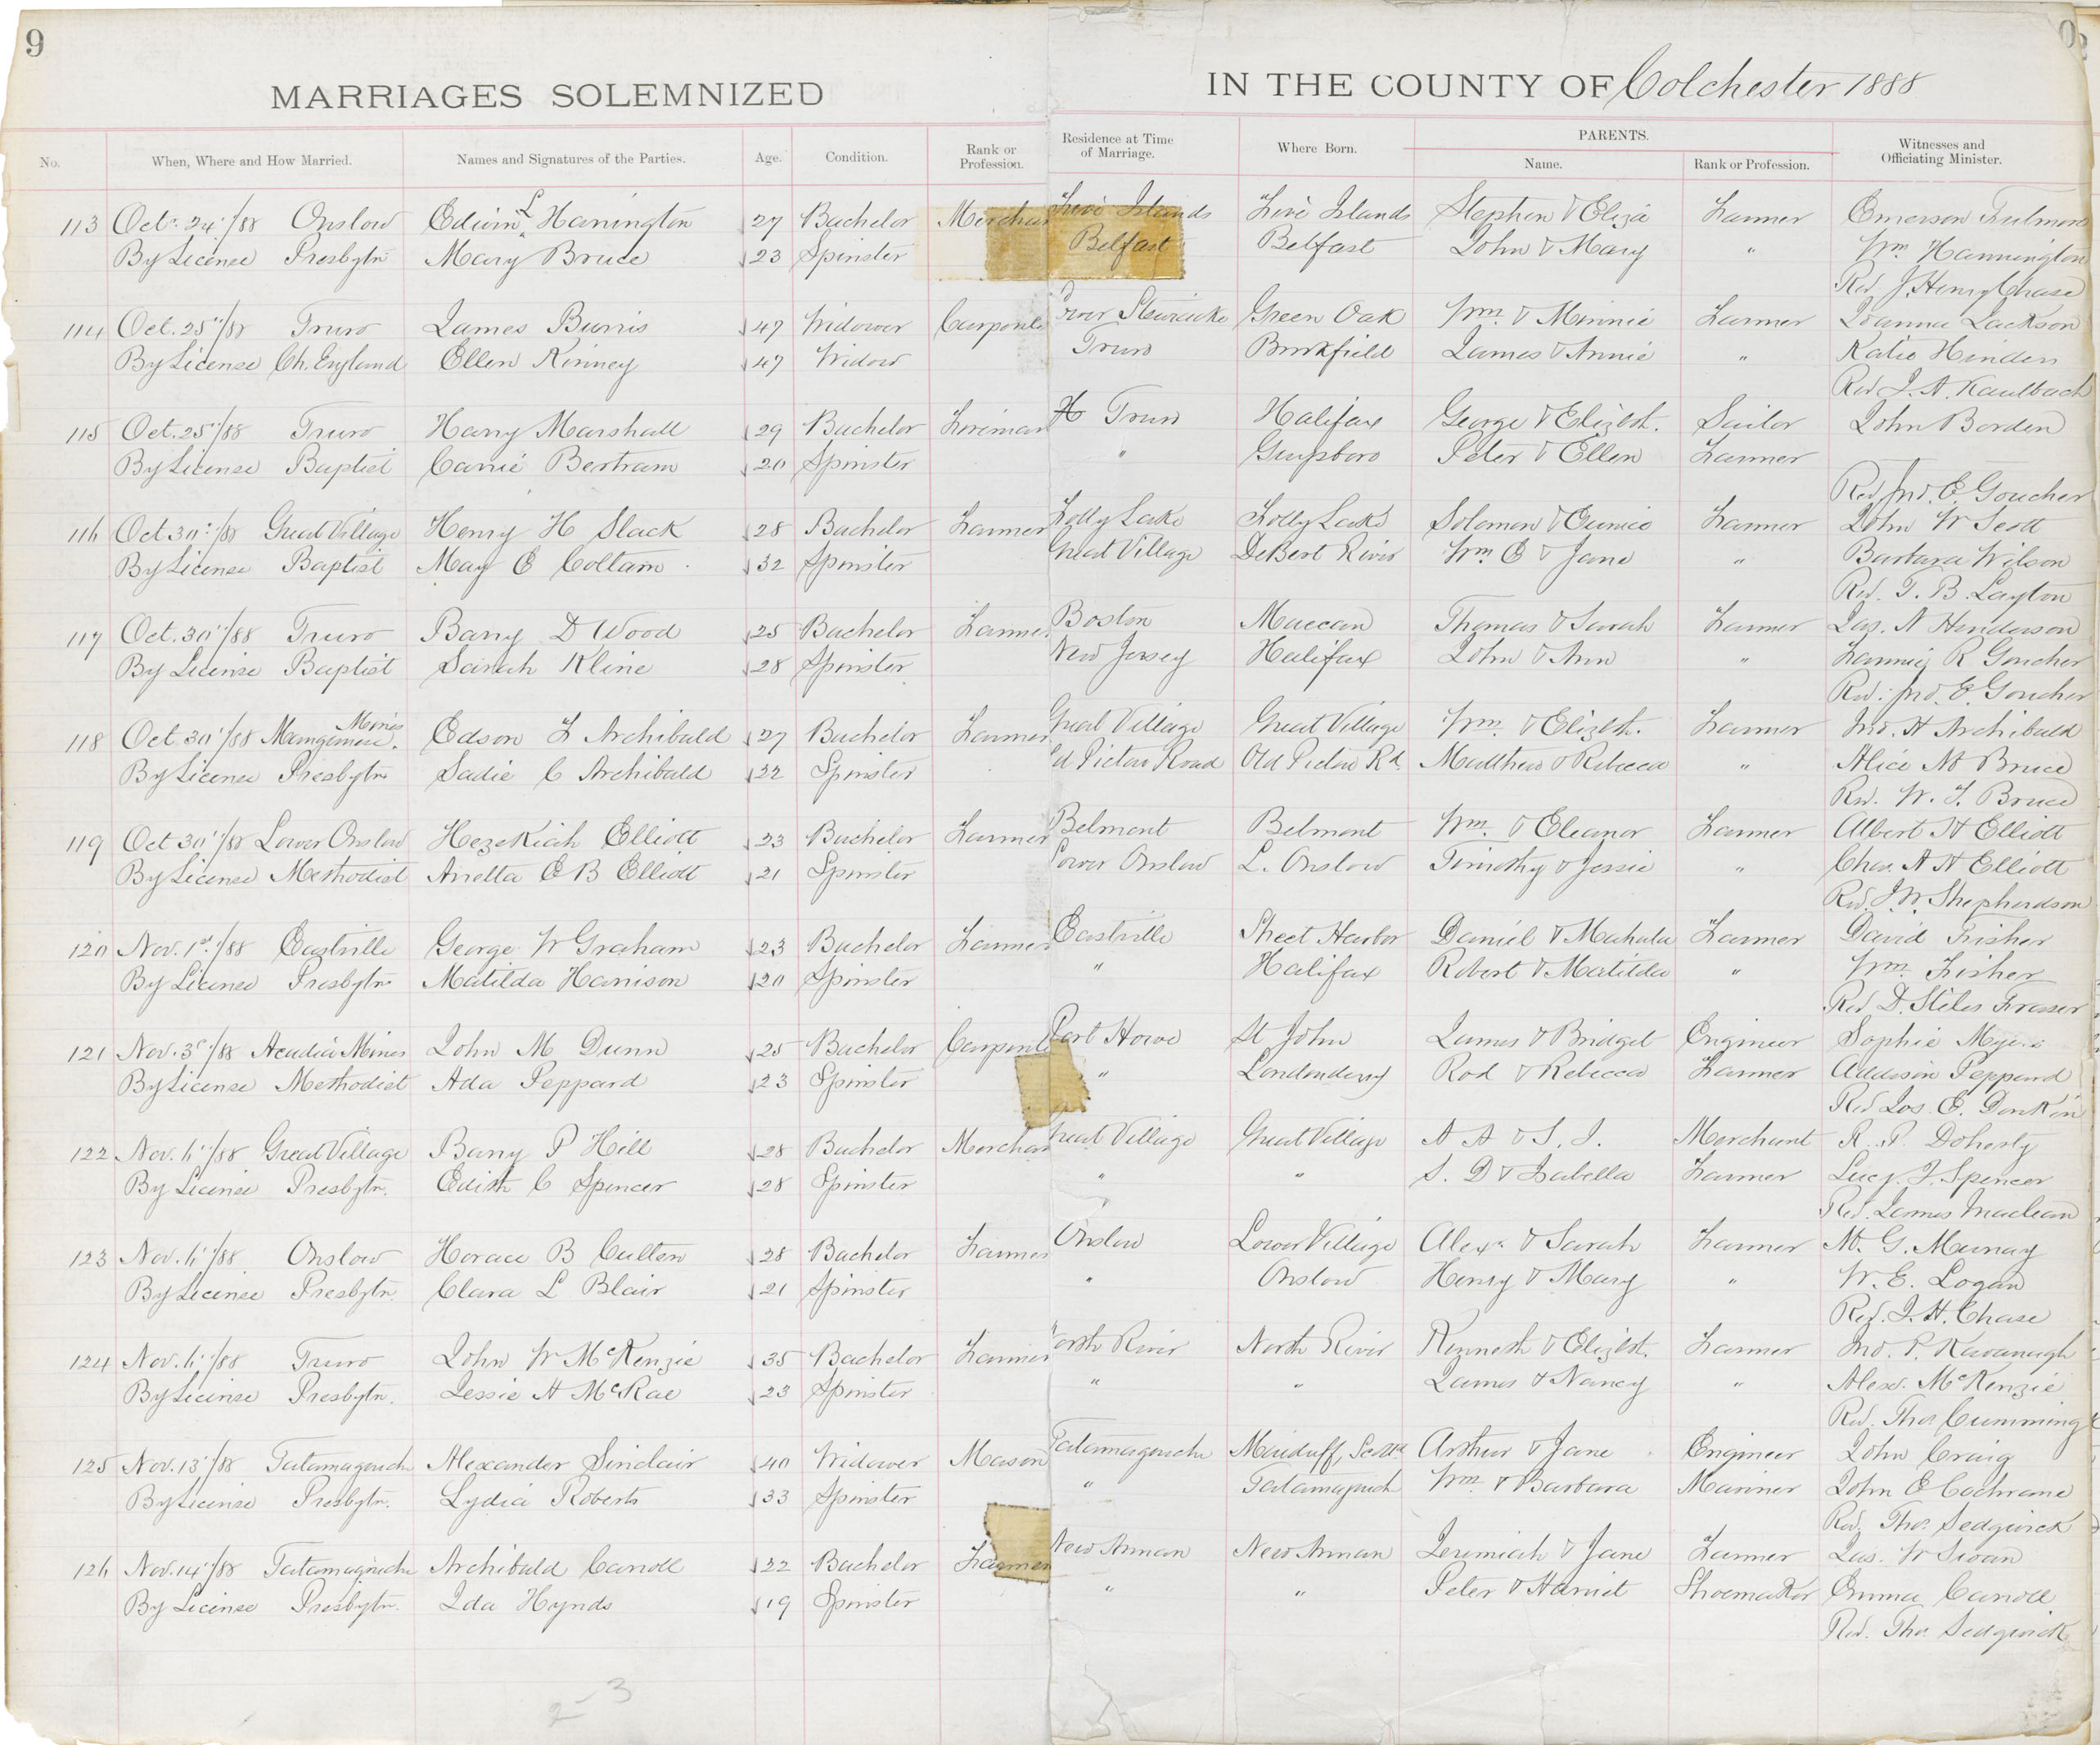 9
MARRIAGES SOLEMNIZED IN THE COUNTY OF Colchester 1888
No. When, Where and How Married. Names and Signatures of the Parties. Age. Condition. Rank or Profession. Residence at Time of Marriage. Where Born. PARENTS. Name. Rank or Profession. Witnesses and Officiating Minister.
113 Oct. 24"/88 Onslow Edwin L Harrington 27 Bachelor Merchan Five Islands Five Islands Stephen & Eliza Farmer Emerson Fulmore
By License Presbytn Mary Bruce 23 Spinster Belfast Belfast John & Mary " Wm. Hannington
Rev J. Henry Chase
114 Oct. 25"/88 Truro James Burris 47 Widower Carpente ower Stewiacke Green Oak Wm. & Minnie Farmer Joanna Jackson
By License Ch. England Ellen Kinney 47 Widow Truro Brookfield James & Annie " Katie Hinden
Rev J. A. Kaulbach
115 Oct. 25"/88 Truro Harry Marshall 29 Bachelor Fireman Truro Halifax George & Elizbt. Sailor John Borden
By License Baptist Carrie Bertram 20 Spinster " Guysboro Peter & Ellen Farmer
Rev Jno. E. Goucher
116 Oct 30"/88 Great Village Henry H Slack 28 Bachelor Farmer Folly Lake Folly Lake Solomon & Eunice Farmer John W Scott
By License Baptist May E Coltam 32 Spinster Great Village DeBert River Wm. E & Jane " Barbara Wilson
Rev. T. B. Layton
117 Oct. 30"/88 Truro Barry D Wood 25 Bachelor Farmer Boston Maccan Thomas & Sarah Farmer Jas. A Henderson
By License Baptist Sarah Kline 28 Spinster New Jersey Halifax John & Ann " Fannie R Goucher
Rev. Jno. E. Goucher
118 Oct 30"/88 Edson F Archibald 27 Bachelor Farmer Great Village Great Village Wm. & Elizbt. Farmer Jno. H Archibald
By License Presbytn Sadie C Archibald 22 Spinster ld Pictou Road Old Pictou Rd. Matthew & Rebecca " Alice M Bruce
Rev. W. T. Bruce
119 Oct 30"/88 Lower Onslow Hezekiah Elliott 23 Bachelor Farmer Belmont Belmont Wm. & Eleanor Farmer Albert H Elliott
By License Methodist Anetta E B Elliott 21 Spinster Lower Onslow L. Onslow Timothy & Jessie " Chas. A H Elliott
Rev. J. W. Shepherdson
120 Nov. 1st/88 Eastville George W Graham 23 Bachelor Farmer Eastville Sheet Harbor Daniel & Mahala Farmer David Fisher
By License Presbytn Matilda Harrison 20 Spinster " Halifax Robert & Matilda " Wm. Fisher
Rev D. Stiles Fraser
121 Nov. 3"/88 Acadia Mines John M Dunn 25 Bachelor Carpente Port Howe St John James & Bridget Engineer Sophie Myers
By License Methodist Ada Peppard 23 Spinster " Londonderry Rod & Rebecca Farmer Addison Peppard
Rev Jos. E. Donkin
122 Nov. 6"/88 Great Village Barry P Hill 28 Bachelor Merchan Great Village Great Village A A & S. J. Merchant R. P. Doherty
By License Presbytn. Edith C Spencer 28 Spinster " " S. D & Isabella Farmer Lucy. J. Spencer
Rev. James Maclean
123 Nov. 6"/88 Onslow Horace B Cutten 28 Bachelor Farmer Onslow Lower Village Alexr. & Sarah Farmer M. G. Murray
By License Presbytn. Clara L Blair 21 Spinster " Onslow Henry & Mary " W. E. Logan
Rev. J. H. Chase
124 Nov. 6"/88 Truro John W McKenzie 35 Bachelor Farmer North River North River Kenneth & Elizbt. Farmer Jno. P. Kavanagh
By License Presbytn. Jessie A McRae 23 Spinster " " James & Nancy " Alexr. McKenzie
Rev. Thos. Cumming
125 Nov. 13"/88 Tatamagouche Alexander Sinclair 40 Widower Mason Tatamagouche Arthur & Jane Engineer John Craig
By License Presbytn. Lydia Roberts 33 Spinster " Tatamagouch Wm. & Barbara Mariner John E Cochrane
Rev. Thos. Sedgwick
126 Nov. 14"/88 Tatamagouche Archibald Carroll 22 Bachelor Farmer New Annan New Annan Jeremiah & Jane Farmer Jas. W Swan
By License Presbytn. Ida Hynds 19 Spinster " " Peter & Harriet Shoemaker Emma Carroll
Rev. Thos. Sedgwick
2-3